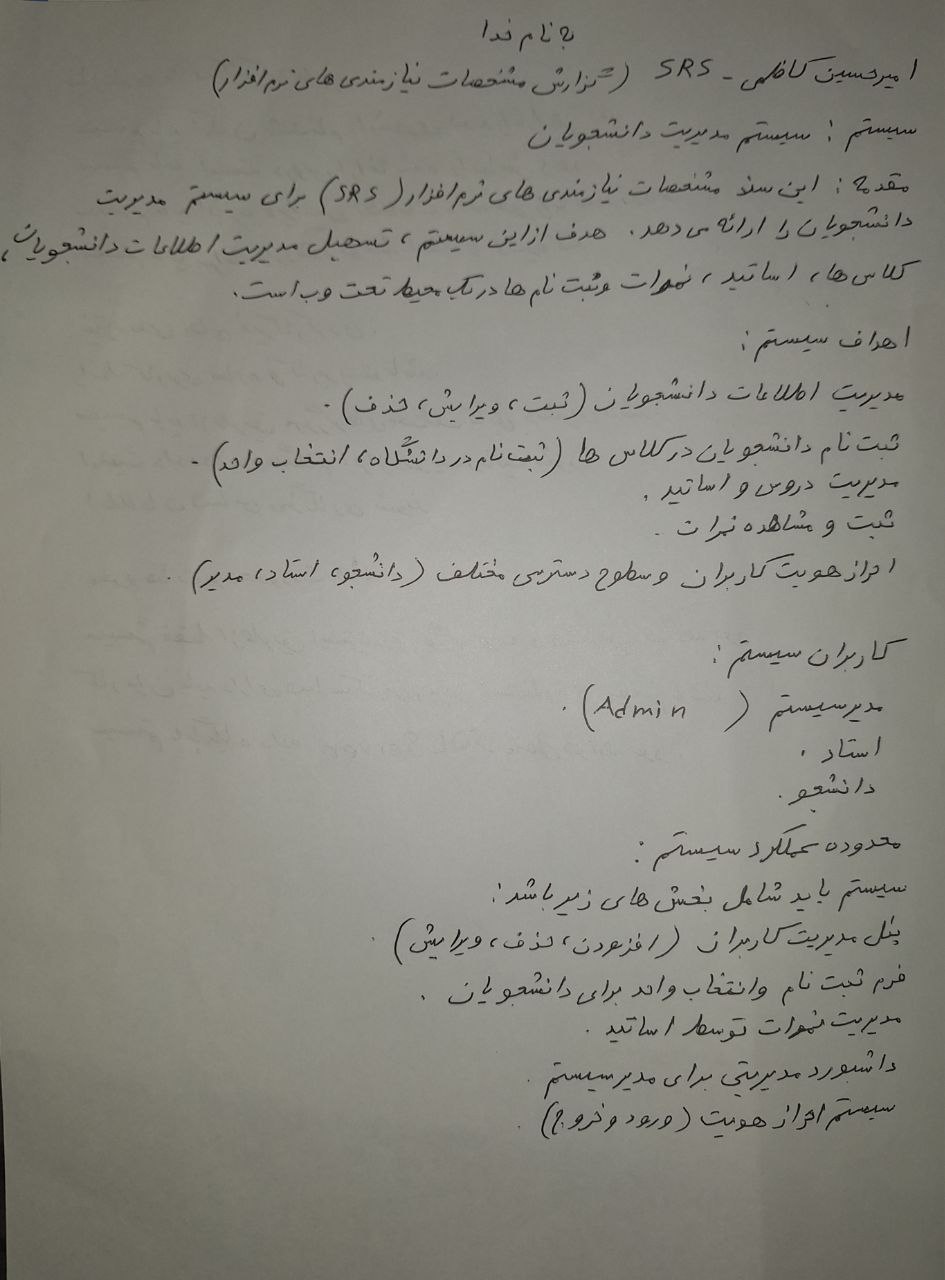 به نام خدا
امیرحسین کاظمی - SRS (گزارش مشخصات نیازمندی های نرم افزار)
سیستم : سیستم مدیریت دانشجویان
مقدمه : این سند مشخصات نیازمندی های نرم افزار (SRS) برای سیستم مدیریت
دانشجویان را ارائه می دهد. هدف از این سیستم ، تسهیل مدیریت اطلاعات دانشجویان ،
کلاس ها ، اساتید ، نمرات و ثبت نام ها در یک محیط تحت وب است.
اهداف سیستم :
مدیریت اطلاعات دانشجویان (ثبت ، ویرایش ، حذف) .
ثبت نام دانشجویان در کلاس ها (ثبت نام در دانشگاه ، انتخاب واحد) .
مدیریت دروس و اساتید .
ثبت و مشاهده نمرات .
احراز هویت کاربران و سطوح دسترسی مختلف (دانشجو ، استاد ، مدیر) .
کاربران سیستم :
مدیر سیستم (Admin) .
استاد .
دانشجو .
محدوده عملکرد سیستم :
سیستم باید شامل بخش های زیر باشد :
پنل مدیریت کاربران (افزودن ، حذف ، ویرایش) .
فرم ثبت نام و انتخاب واحد برای دانشجویان .
مدیریت نمرات توسط اساتید .
داشبورد مدیریتی برای مدیر سیستم .
سیستم احراز هویت (ورود و خروج) .